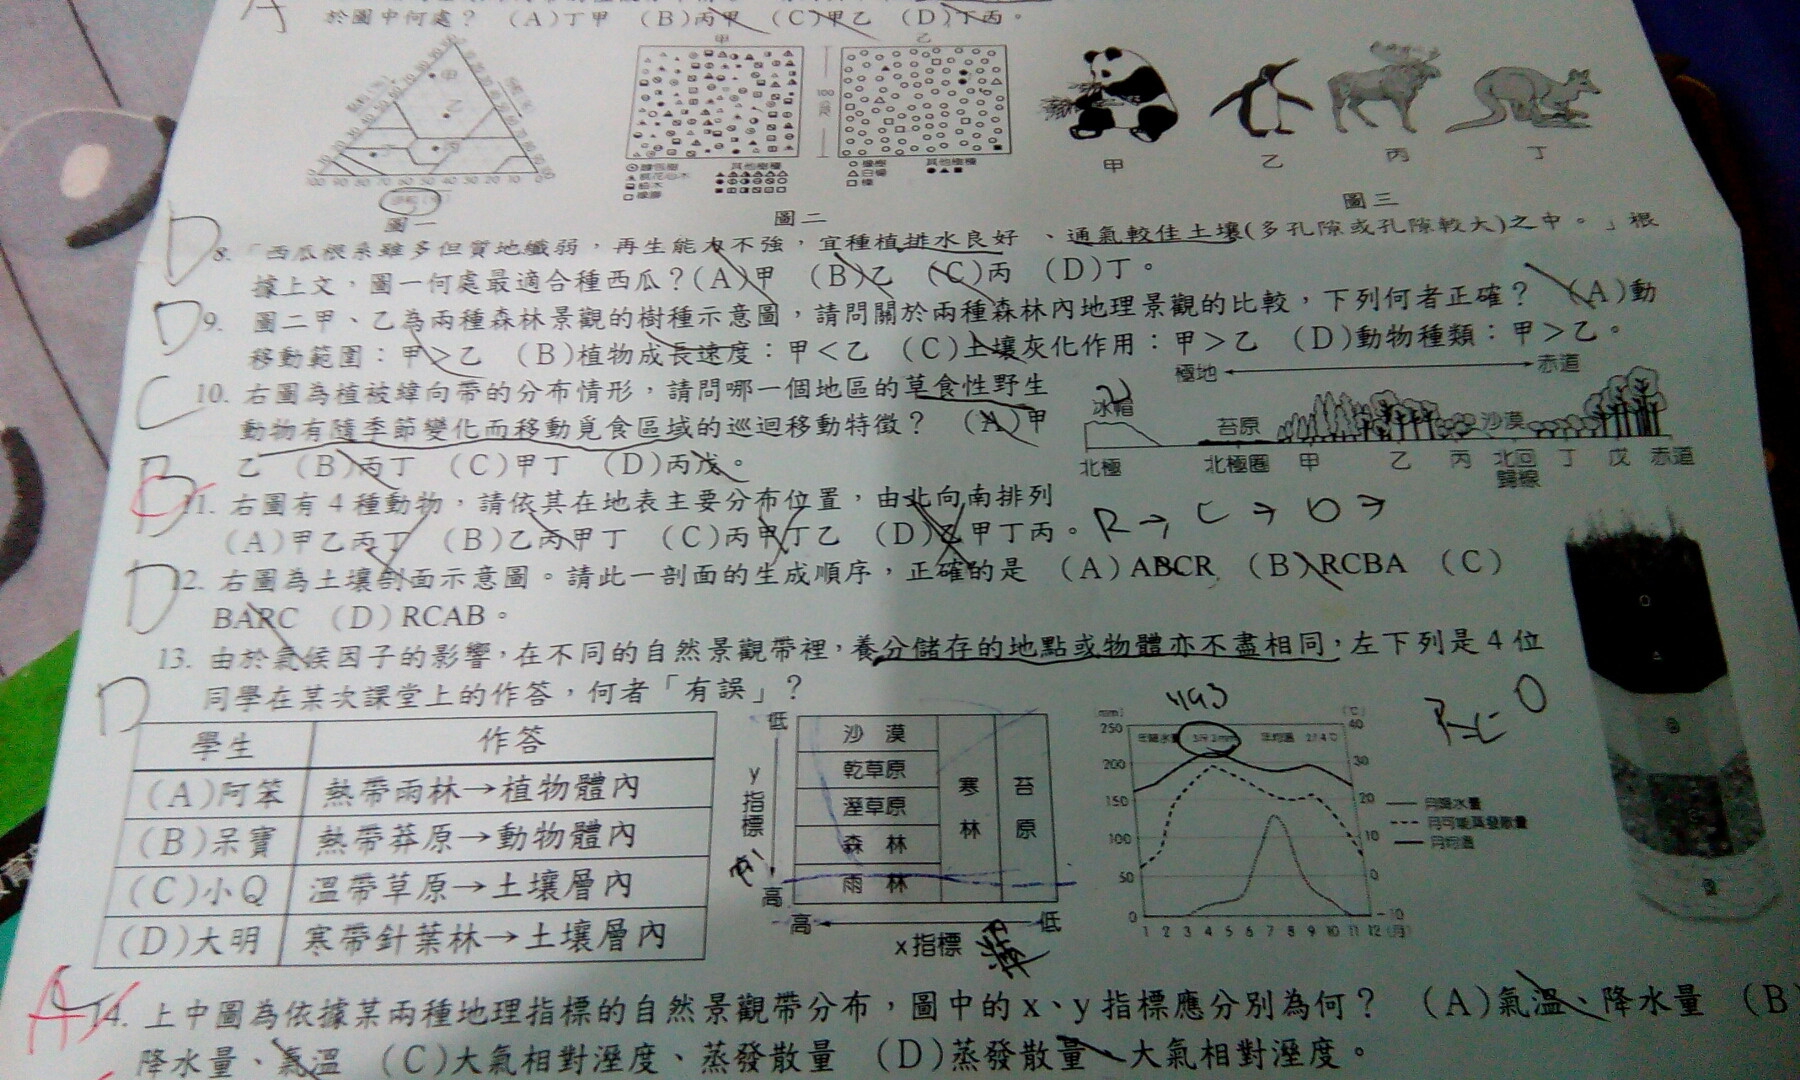 於圖中何處？ (A)丁甲 (B)丙甲 (C)甲乙 (D)丁丙。
甲 乙
100 公尺
其他樹種 其他樹種
甲 乙 丙 丁
100 90 80 70 60 50 40 30 20 10 0
圖一 圖二 圖三
D
8. 「西瓜根系雖多但質地纖弱，再生能力不強，宜種植排水良好、通氣較佳土壤(多孔隙或孔隙較大)之中。」根
據上文，圖一何處最適合種西瓜？(A)甲 (B)乙 (C)丙 (D)丁。
D
9. 圖二甲、乙為兩種森林景觀的樹種示意圖，請問關於兩種森林內地理景觀的比較，下列何者正確？ (A)動
移動範圍：甲＞乙 (B)植物成長速度：甲＜乙 (C)土壤灰化作用：甲＞乙 (D)動物種類：甲＞乙。
C
10. 右圖為植被緯向帶的分布情形，請問哪一個地區的草食性野生
動物有隨季節變化而移動覓食區域的巡迴移動特徵？ (A)甲
乙 (B)丙丁 (C)甲丁 (D)丙戊。
極地 赤道
冰帽 苔原 沙漠
北極 北極圈 甲 乙 丙 北回歸線 丁 戊 赤道
11. 右圖有4種動物，請依其在地表主要分布位置，由北向南排列
(A)甲乙丙丁 (B)乙丙甲丁 (C)丙甲丁乙 (D)乙甲丁丙。
R→ C → D →
D
12. 右圖為土壤剖面示意圖。請此一剖面的生成順序，正確的是 (A)ABCR (B)RCBA (C)
BARC (D)RCAB。
13. 由於氣候因子的影響，在不同的自然景觀帶裡，養分儲存的地點或物體亦不盡相同，左下列是4位
同學在某次課堂上的作答，何者「有誤」？
D
學生 作答
(A)阿笨 熱帶雨林→植物體內
(B)呆寶 熱帶莽原→動物體內
(C)小Q 溫帶草原→土壤層內
(D)大明 寒帶針葉林→土壤層內
低 y指標 高
沙漠
乾草原
溼草原
森林
雨林
寒林
苔原
高 x指標 低
(mm) 250 200 150 100 50 0
(℃) 40 30 20 10 0 -10
年降水量 年均溫
1 2 3 4 5 6 7 8 9 10 11 12(月)
月降水量
月可能蒸發散量
月均溫
A
14. 上中圖為依據某兩種地理指標的自然景觀帶分布，圖中的x、y指標應分別為何？ (A)氣溫、降水量 (B
降水量、氣溫 (C)大氣相對溼度、蒸發散量 (D)蒸發散量、大氣相對溼度。